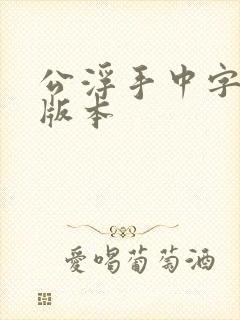 公浮手中字
版本
爱喝葡萄酒